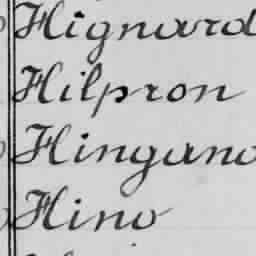 Hignard
Hilpron
Hingano
Hino